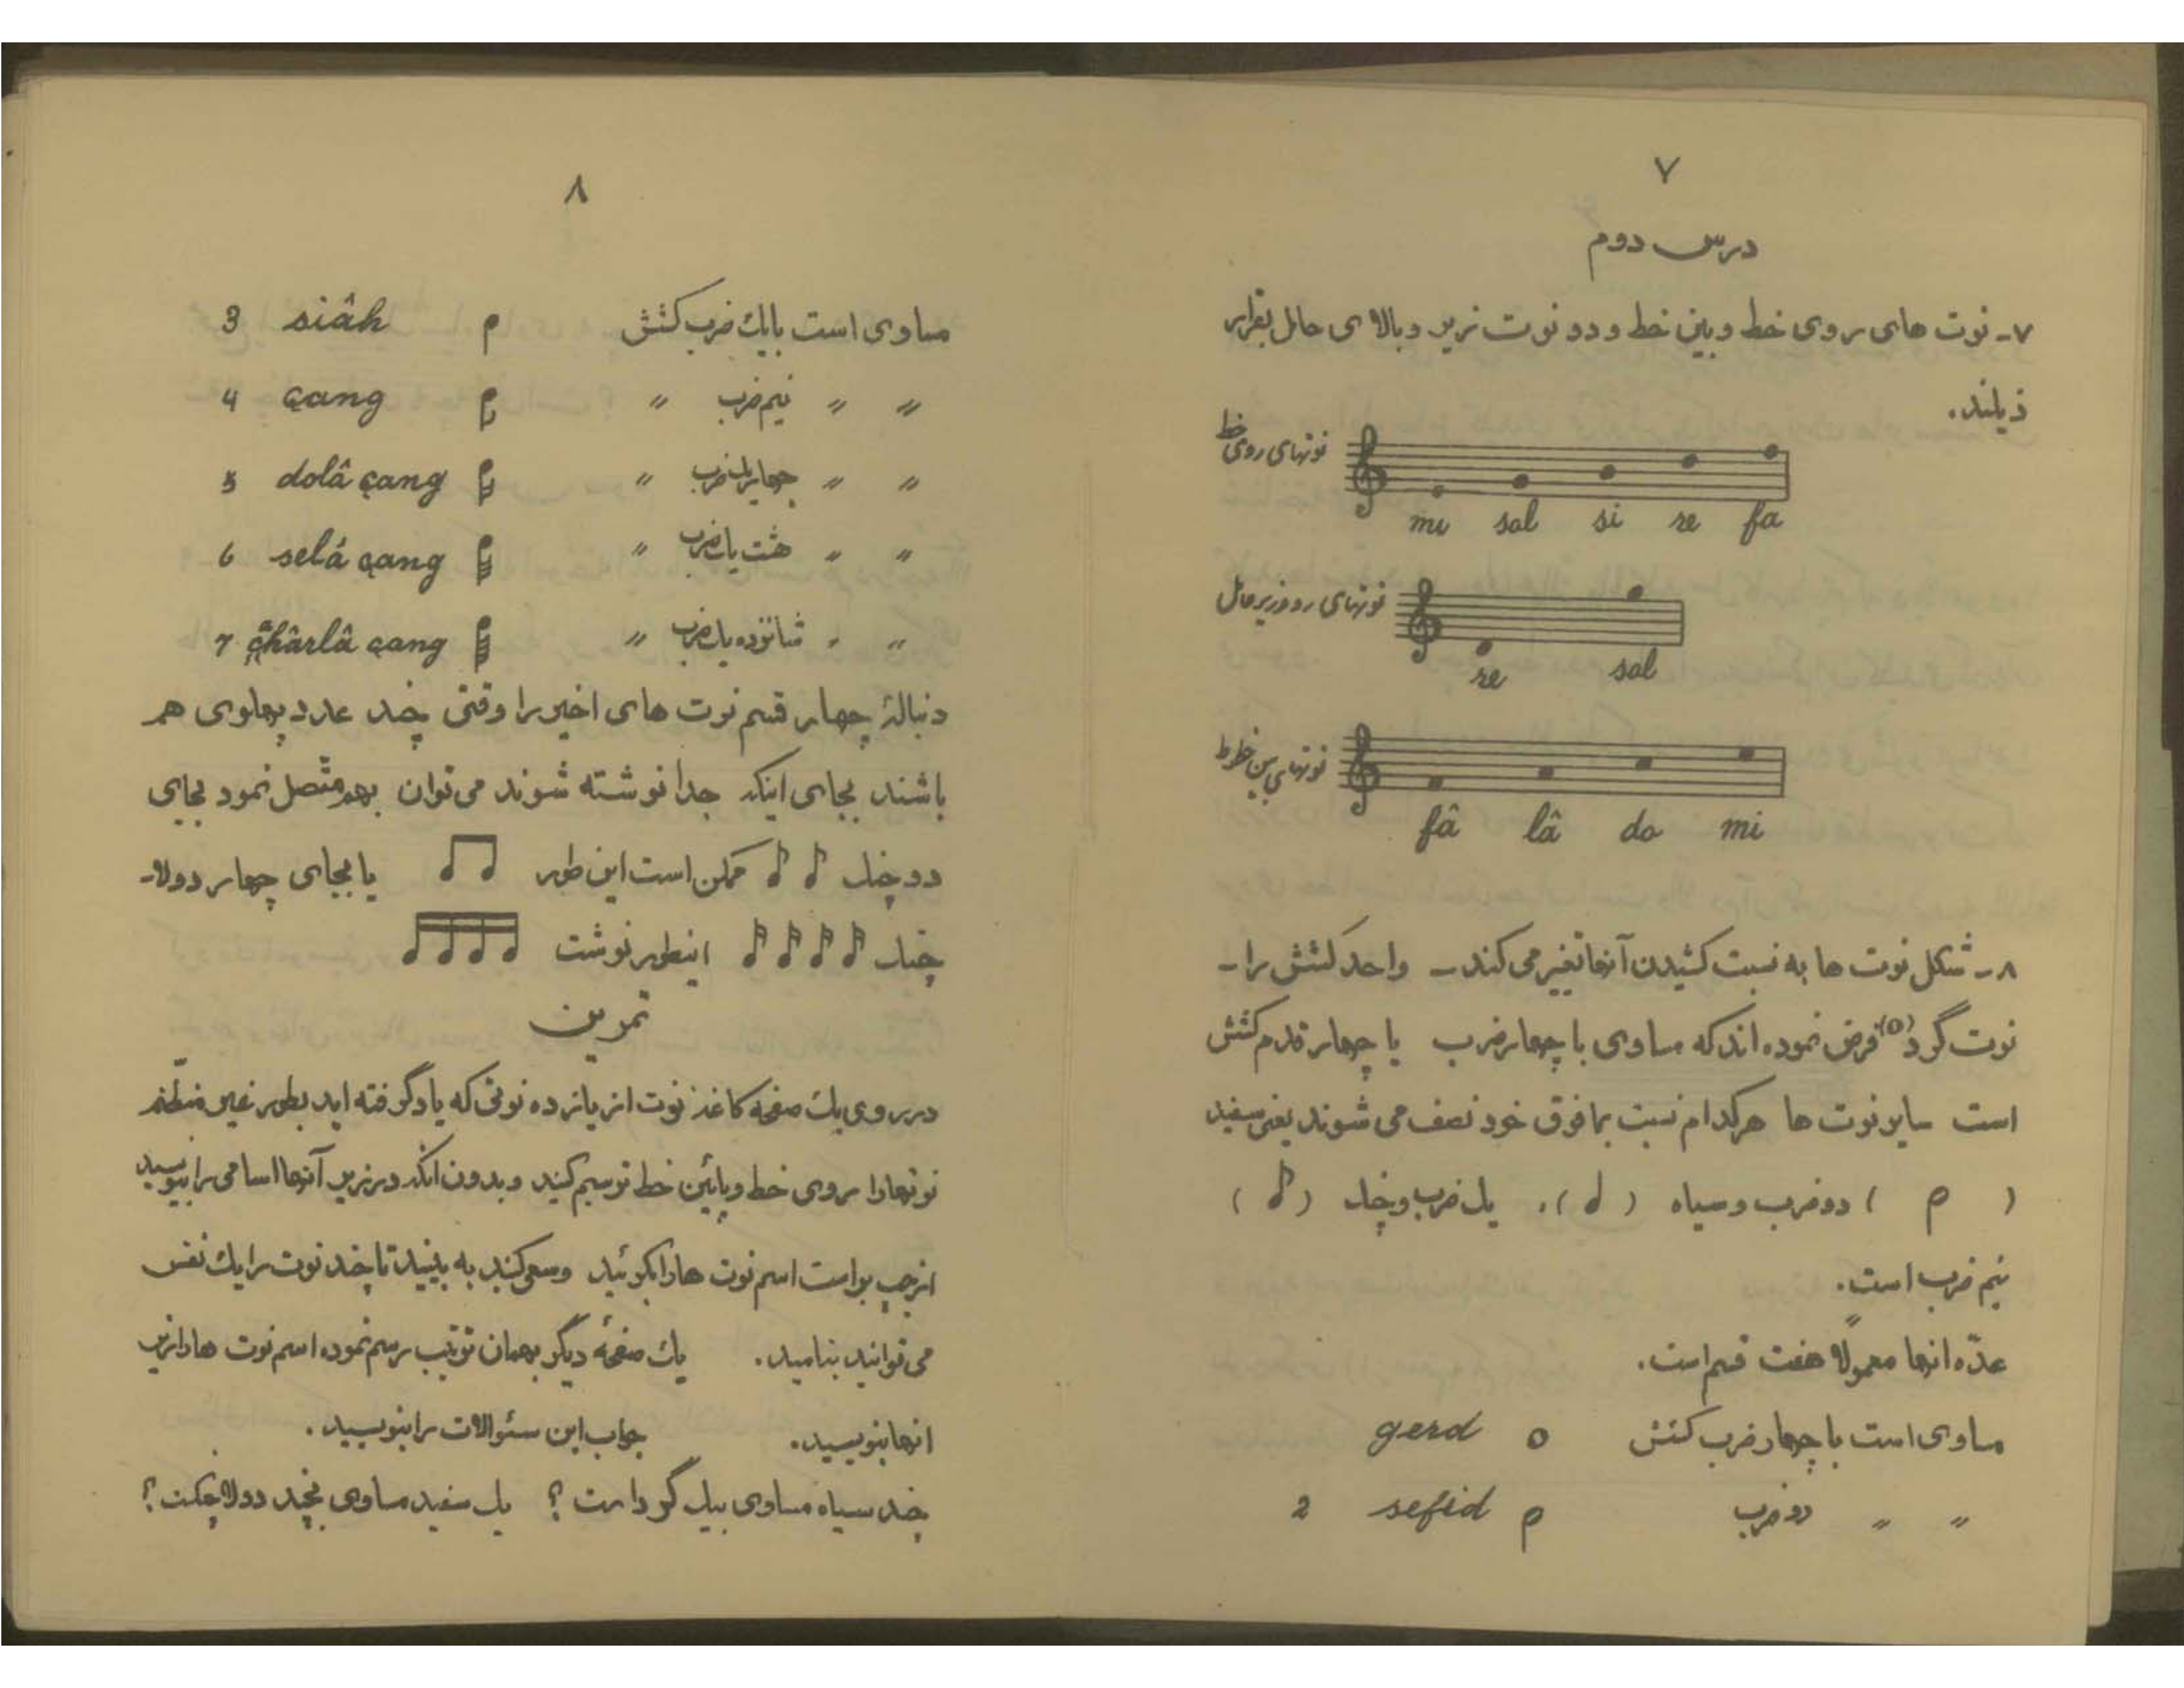 ۷
درس دوم
۷ـ نوت های روی خط و بین خط و دو نوت زیر و بالای حامل بقرار
ذیلند.
نوتهای روی خط
mi sol si re fa
نوتهای رو و زیر حامل
re sol
نوتهای بین خطوط
fâ lâ do mi
۸ـ شکل نوت ها به نسبت کشیدن آنها تغییر می کند ـ واحد کشش را ـ
نوت گرد (o) فرض نموده اند که مساوی با چهار ضرب یا چهار قدم کشش
است سایر نوت ها هر کدام نسبت بمافوق خود نصف می شوند یعنی سفید
( ) دو ضرب و سیاه ( ♩ ). یک ضرب و چنک ( ♪ )
نیم ضرب است.
عدّه انها معمولاً هفت قسم است.
مساوی است با چهار ضرب کشش o gerd
〃 〃 دو ضرب sefid 2
۸
مساوی است با یک ضرب کشش siâh 3
〃 〃 نیم ضرب 〃 çang 4
〃 〃 چهار یک ضرب 〃 dolâ çang 5
〃 〃 هشت یک ضرب 〃 selâ çang 6
〃 〃 شانزده یک ضرب 〃 çhârlâ çang 7
دنبالۀ چهار قسم نوت های اخیر را وقتی چند عدد پهلوی هم
باشند بجای اینکه جدا نوشته شوند می توان بهم متّصل نمود بجای
دو چنک ♪ ♪ ممکن است این طور ♫ یا بجای چهار دولا ـ
چنک اینطور نوشت
تمرین
در روی یک صفحه کاغذ نوت از یازده نوتی که یاد گرفته اید بطور غیر منظّم
نوتها را روی خط و پائین خط ترسیم کنید و بدون انکه در زیر آنها اسامی را بنویسید
از چپ براست اسم نوت ها را بگوئید و سعی کنید به بینید تا چند نوت را یک نفس
می توانید بنامید. یک صفحۀ دیگر بهمان ترتیب رسم نموده اسم نوت ها را زیر
انها بنویسید. جواب این سئوالات را بنویسید.
چند سیاه مساوی بیک گرد است ؟ یک سفید مساوی بچند دولا چنکست ؟